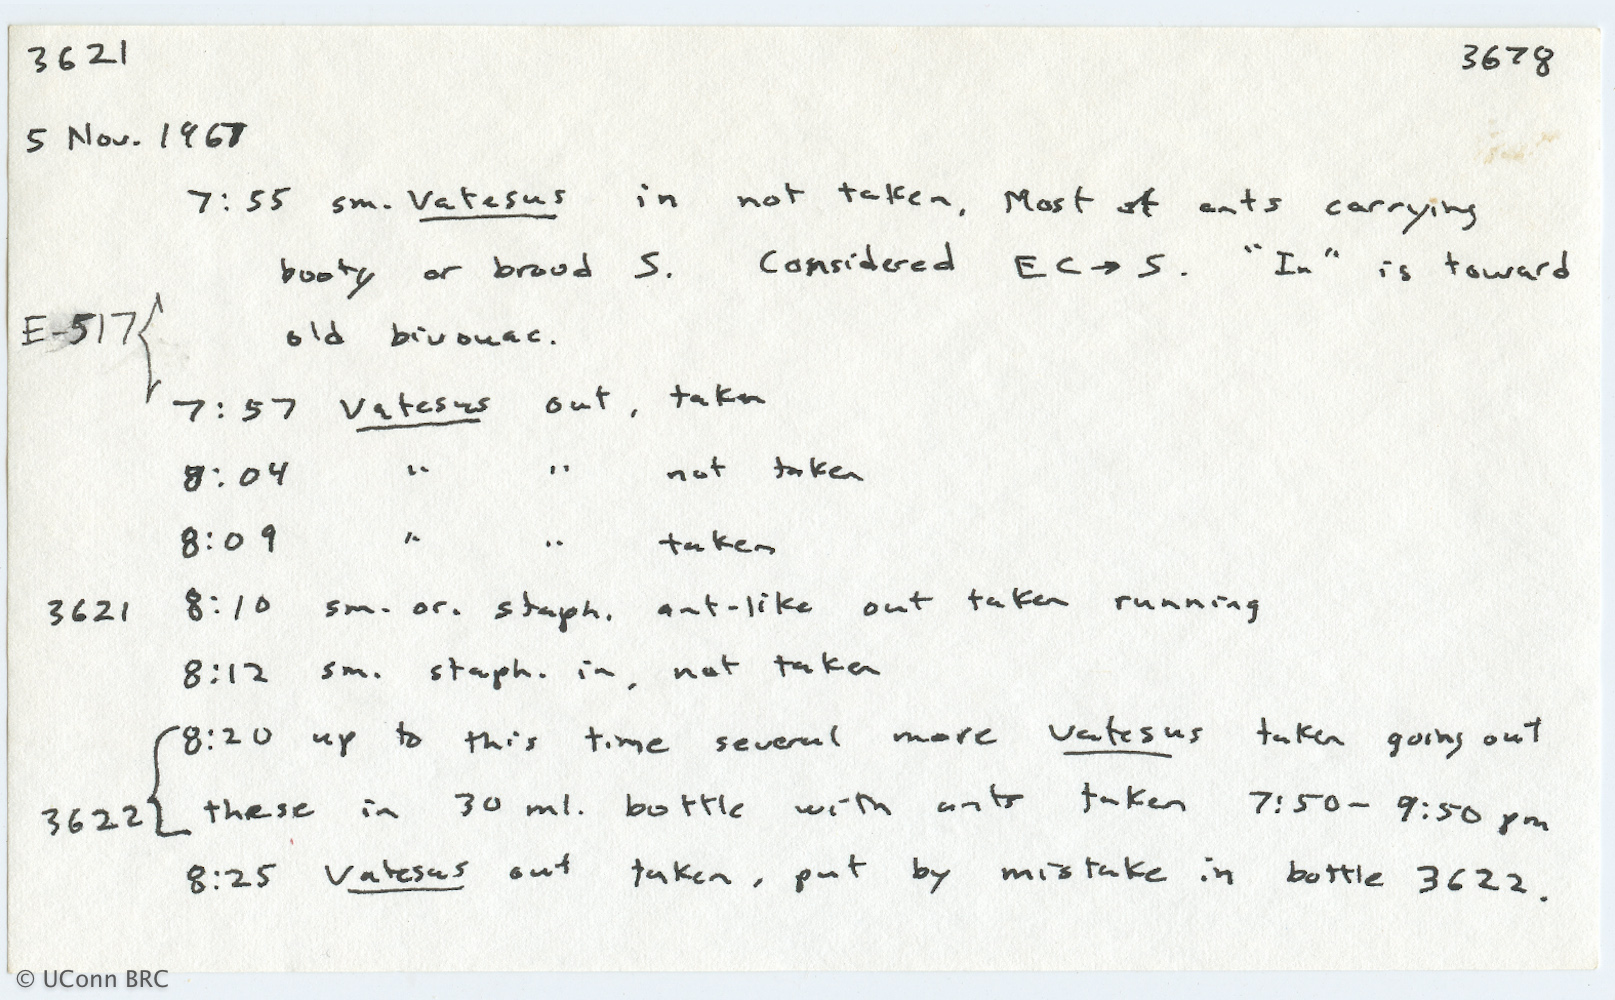 3621 3678
5 Nov. 1967
7:55 sm. Vatesus in not taken, Most of ants carrying
booty or brood S. Considered EC→S. "In" is toward
E-517 old bivouac.
7:57 Vatesus out, taken
8:04 " " not taken
8:09 " " taken
3621 8:10 sm. or. staph. ant-like out taken running
8:12 sm. staph. in, not taken
8:20 up to this time several more Vatesus taken going out
3622 these in 30 ml. bottle with ants taken 7:50- 9:50 pm
8:25 Vatesus out taken, put by mistake in bottle 3622.
© UConn BRC